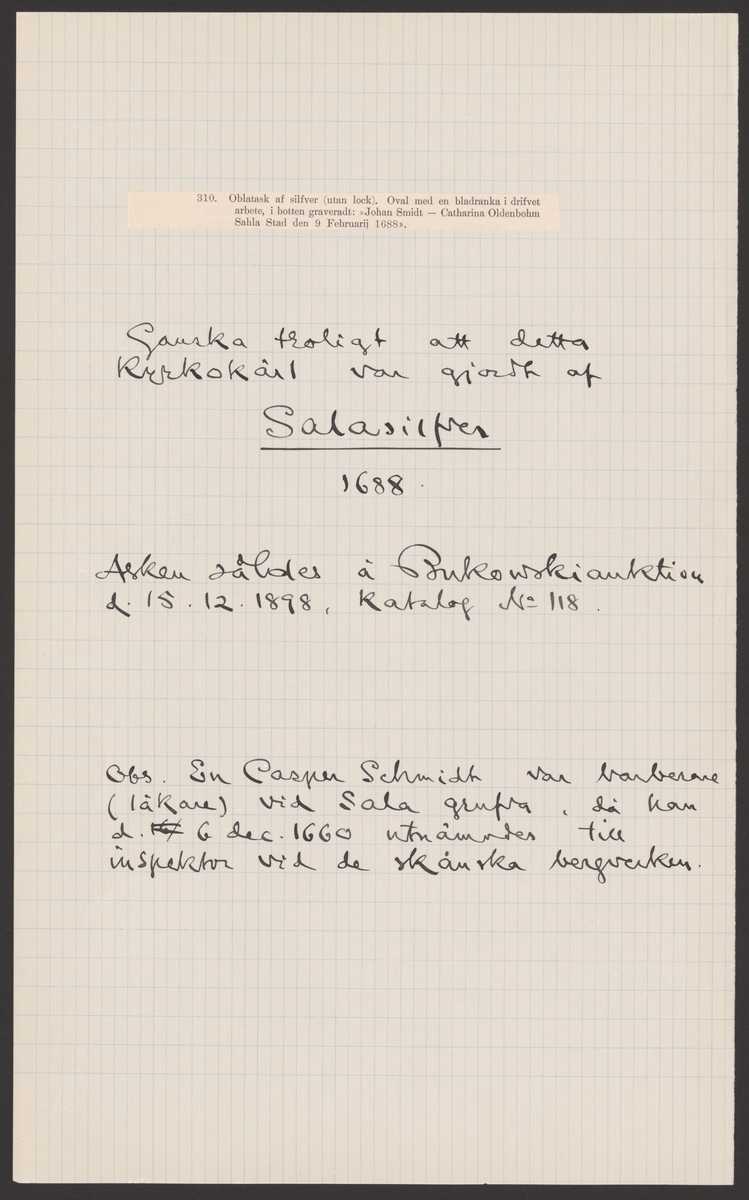 310. Oblatask af silfver (utan lock). Oval med en bladranka i drifvet
arbete, i botten graveradt: »Johan Smidt — Catharina Oldenbohm
Sahla Stad den 9 Februarij 1688».
Ganska troligt att detta
Kyrkokärl var gjordt af
Salasilfver
1688.
Asken såldes å Bukowskiauktion
d. 15. 12. 1898, Katalog No 118.
Obs. En Casper Schmidt var barberare
(läkare) vid Sala grufva, då han
d. 6 dec. 1660 utnämndes till
inspektor vid de skånska bergverken.